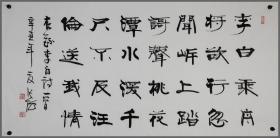 李白乘舟
將欲行忽
聞岸上踏
謌聲桃花
潭水深千
尺不及汪
倫送我情
右錄李白詩一首
辛丑年夏